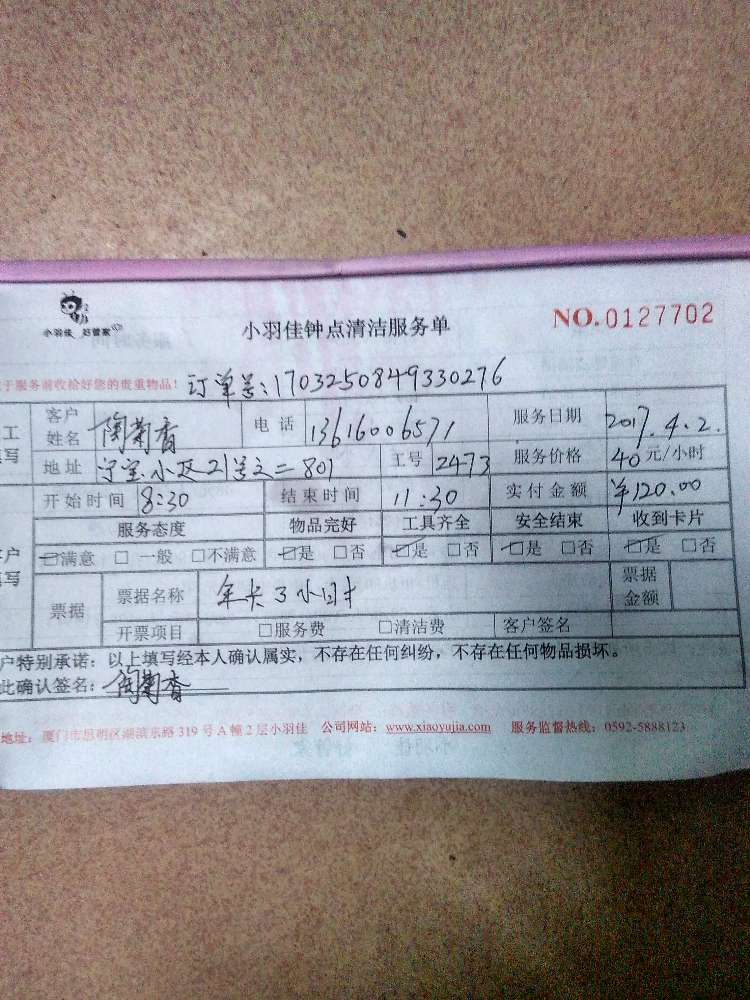 小羽佳 好管家
小羽佳钟点清洁服务单
NO.0127702
于服务前收拾好您的贵重物品！
订单号:1703250849330276
工 客户姓名 陶菊香 电话 13616006571 服务日期 2017.4.2.
写 地址 小区21号之二801 工号 2473 服务价格 40元/小时
开始时间 8:30 结束时间 11:30 实付金额 ¥120.00
服务态度 物品完好 工具齐全 安全结束 收到卡片
户 □满意 □一般 □不满意 □是 □否 □是 □否 □是 □否 □是 □否
写 票据 票据名称 年卡3小时 票据金额
开票项目 □服务费 □清洁费 客户签名
户特别承诺：以上填写经本人确认属实，不存在任何纠纷，不存在任何物品损坏。
此确认签名：陶菊香
地址：厦门市思明区湖滨东路319号A幢2层小羽佳 公司网站：www.xiaoyujia.com 服务监督热线：0592-5888123